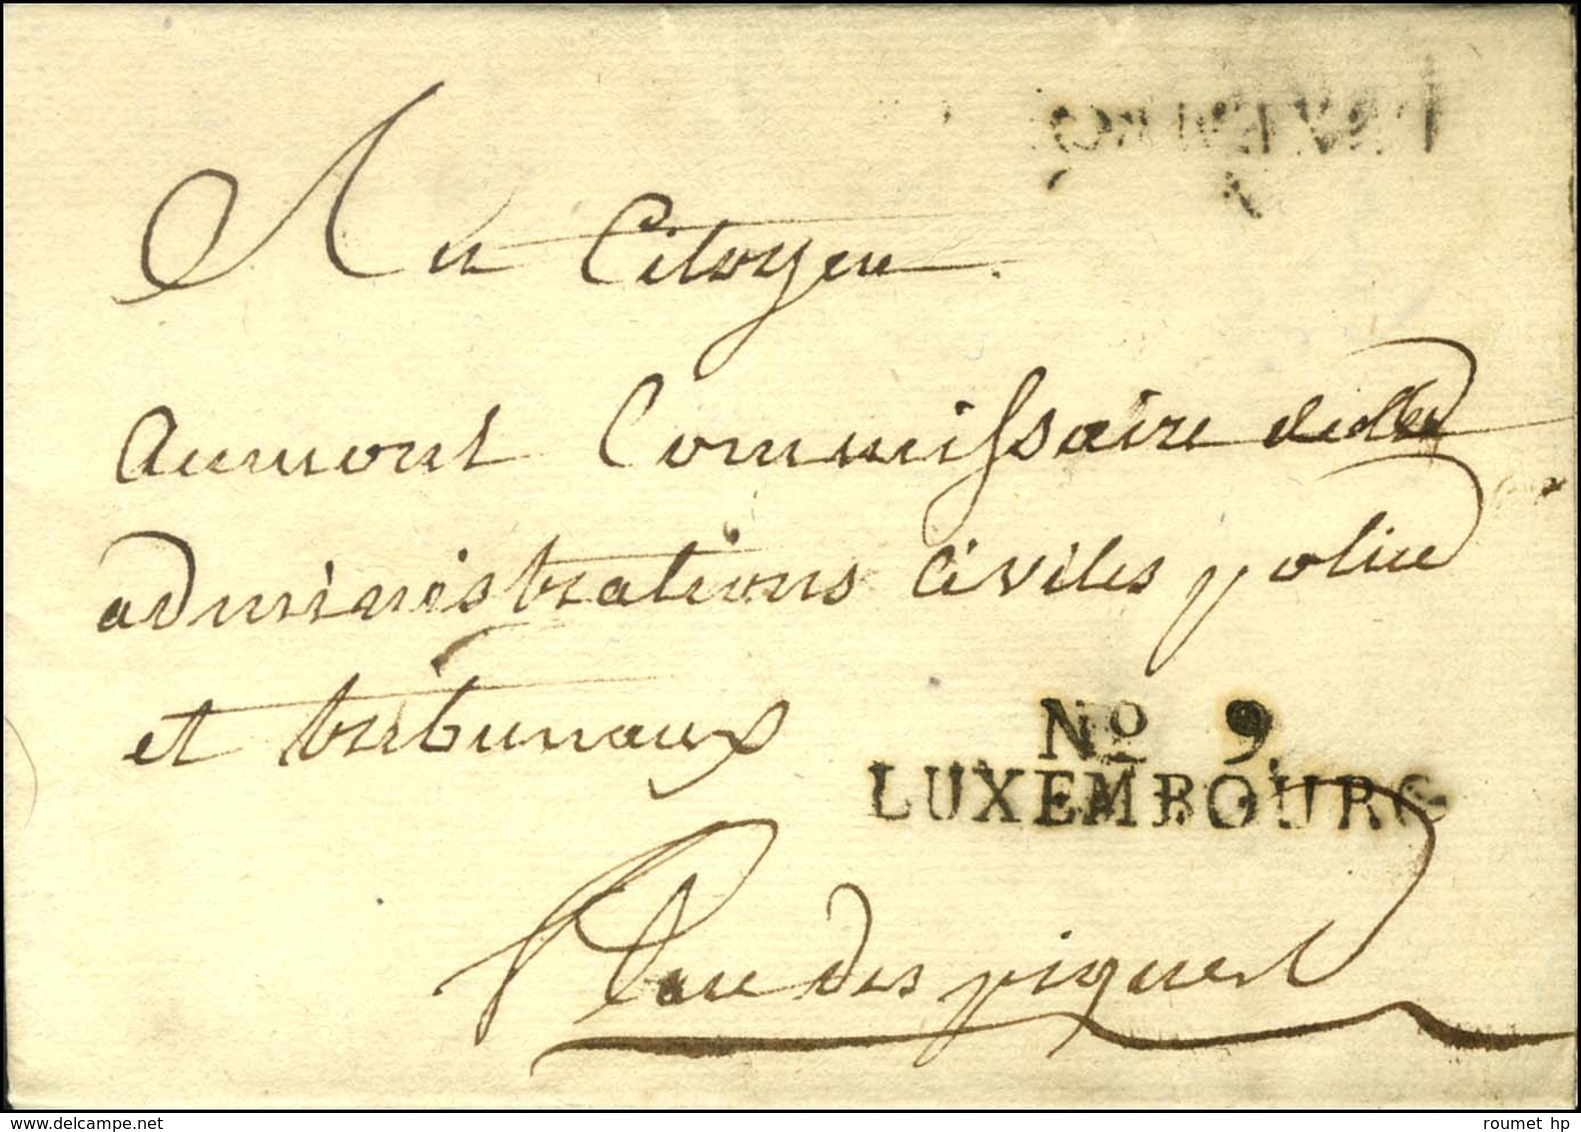 Au Citoyen
Aumont Commissaire des
administrations Civiles police
et tribunaux
No 9
LUXEMBOURG
Place des piques
www.delcampe.net
roumet hp